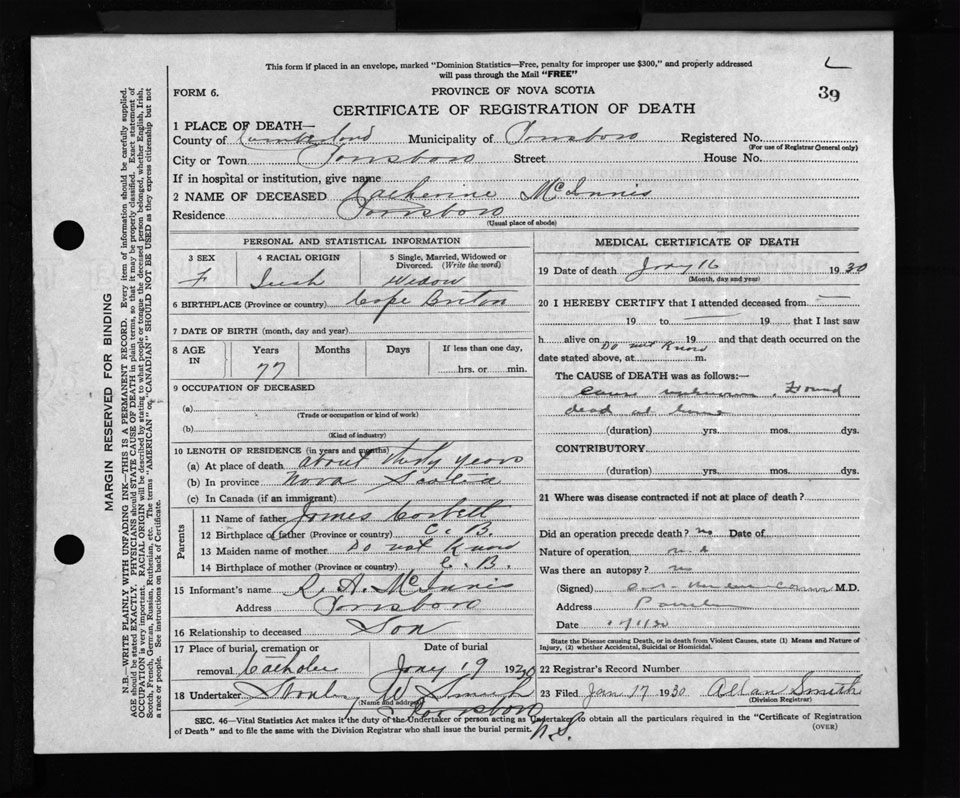 This form if placed in an envelope, marked "Dominion Statistics—Free, penalty for improper use $300," and properly addressed
will pass through the Mail "FREE"
39
FORM 6.
PROVINCE OF NOVA SCOTIA
CERTIFICATE OF REGISTRATION OF DEATH
1 PLACE OF DEATH—
County of Cumberland Municipality of Parrsboro Registered No.
(For use of Registrar General only)
City or Town Parrsboro Street House No.
If in hospital or institution, give name
2 NAME OF DECEASED Catherine McInnis
Residence Parrsboro
(Usual place of abode)
PERSONAL AND STATISTICAL INFORMATION
3 SEX 4 RACIAL ORIGIN 5 Single, Married, Widowed or Divorced. (Write the word)
F Irish Widow
6 BIRTHPLACE (Province or country) Cape Briton
7 DATE OF BIRTH (month, day and year)
8 AGE IN Years Months Days If less than one day,
77 hrs. or min.
9 OCCUPATION OF DECEASED
(a)
(Trade or occupation or kind of work)
(b)
(Kind of industry)
10 LENGTH OF RESIDENCE (in years and months)
(a) At place of death about thirty years
(b) In province Nova Scotia
(c) In Canada (if an immigrant)
Parents
11 Name of father James Corbett
12 Birthplace of father (Province or country) C. B.
13 Maiden name of mother Do not Know
14 Birthplace of mother (Province or country) C. B.
15 Informant's name R. A. McInnis
Address Parrsboro
16 Relationship to deceased Son
17 Place of burial, cremation or Date of burial
removal Catholic Jany 19 19
18 Undertaker W. Smith
(Name and address)
Parrsboro
N.S.
MEDICAL CERTIFICATE OF DEATH
19 Date of death Jany 16 1930
(Month, day and year)
20 I HEREBY CERTIFY that I attended deceased from
19 to 19 that I last saw
h alive on 19 and that death occurred on the
Do not Know
date stated above, at m.
The CAUSE of DEATH was as follows:—
Cause unknown. Found
dead at home
(duration) yrs. mos. dys.
CONTRIBUTORY.
(duration) yrs. mos. dys.
21 Where was disease contracted if not at place of death?
Did an operation precede death? no Date of
Nature of operation
Was there an autopsy? no
(Signed) M.D.
Address
Date
State the Disease causing Death, or in death from Violent Causes, state (1) Means and Nature of
Injury, (2) whether Accidental, Suicidal or Homicidal.
22 Registrar's Record Number
23 Filed Jan 17 1930 Allan Smith
(Division Registrar)
SEC. 46—Vital Statistics Act makes it the duty of the Undertaker or person acting as Undertaker to obtain all the particulars required in the "Certificate of Registration
of Death" and to file the same with the Division Registrar who shall issue the burial permit.
(OVER)
MARGIN RESERVED FOR BINDING
N.B.—WRITE PLAINLY WITH UNFADING INK—THIS IS A PERMANENT RECORD. Every item of information should be carefully supplied.
AGE should be stated EXACTLY. PHYSICIANS should STATE CAUSE OF DEATH in plain terms, so that it may be properly classified. Exact statement of
OCCUPATION is very important. RACIAL ORIGIN will be described by stating to what people or tongue the deceased person belonged, whether English, Irish,
Scotch, French, German, Russian, Ruthenian, etc. The terms "AMERICAN" or "CANADIAN" SHOULD NOT BE USED as they express citizenship but not
a race or people. See instructions on back of Certificate.